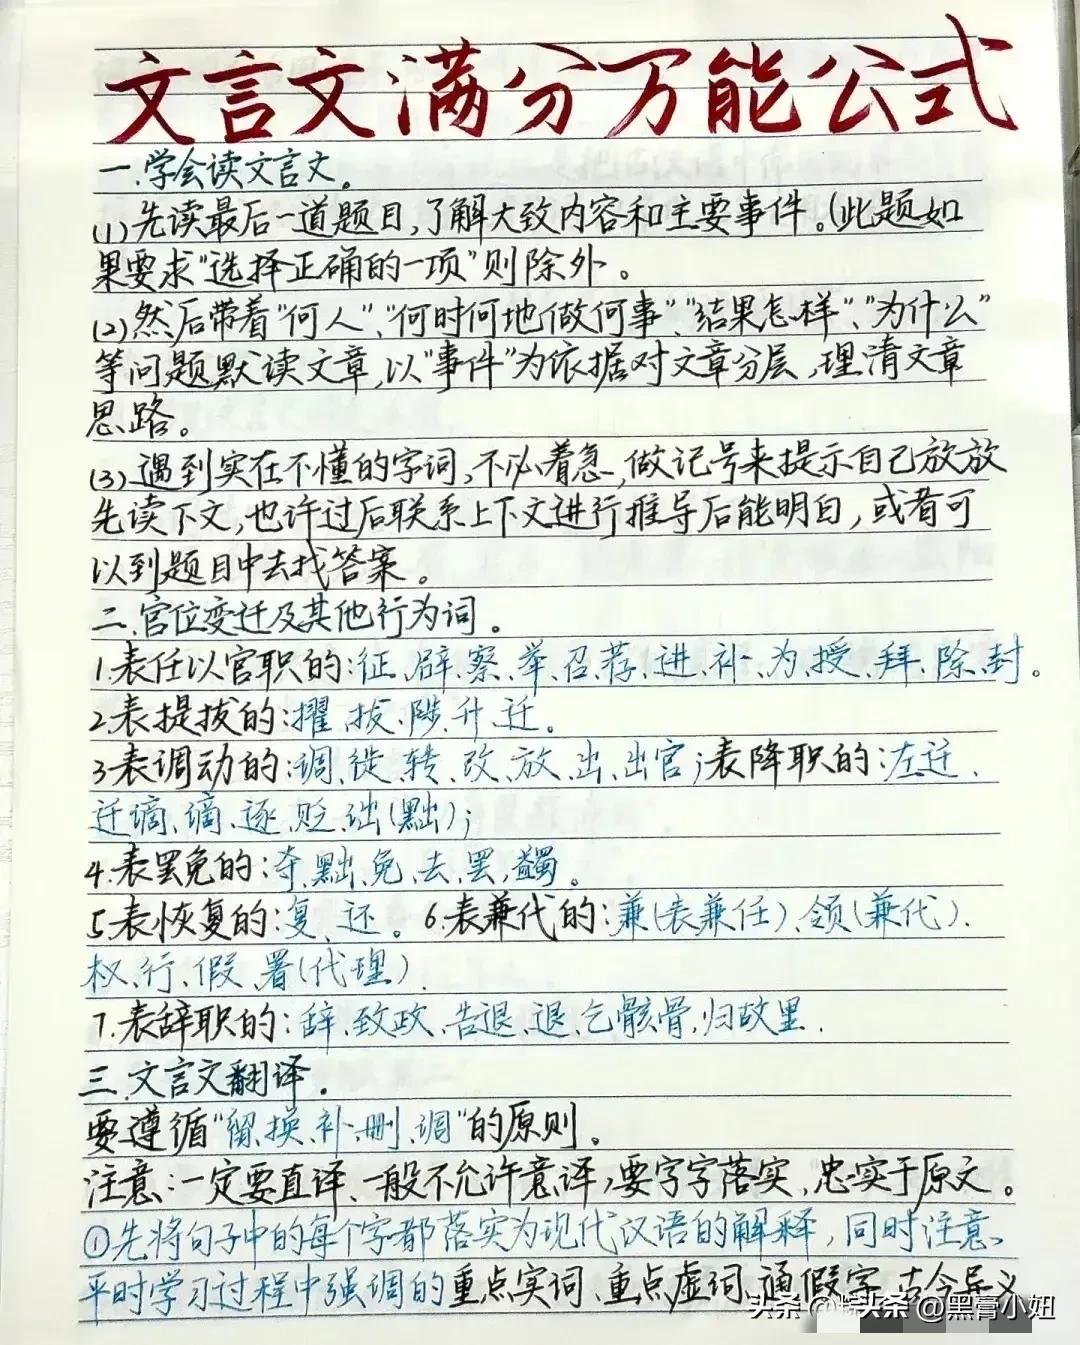 文言文满分万能公式
一.学会读文言文。
(1)先读最后一道题目,了解大致内容和主要事件。(此题如
果要求“选择正确的一项”则除外。
(2)然后带着“何人”、“何时何地做何事”、“结果怎样”、“为什么”
等问题默读文章,以“事件”为依据对文章分层,理清文章
思路。
(3)遇到实在不懂的字词,不必着急,做记号来提示自己放放
先读下文,也许过后联系上下文进行推导后能明白,或者可
以到题目中去找答案。
二.官位变迁及其他行为词。
1.表任以官职的:征、辟、察、举、召、荐、进、补、为、授、拜、除、封。
2.表提拔的:擢、拔、陟、升、迁。
3.表调动的:调、徙、转、改、放、出、出官;表降职的:左迁、
迁谪、谪、逐、贬、诎(黜);
4.表罢免的:夺、黜、免、去、罢、蠲。
5.表恢复的:复、还。6.表兼代的:兼(表兼任)、领(兼代)、
权、行、假、署(代理)
7.表辞职的:辞、致政、告退、退、乞骸骨、归故里.
三.文言文翻译.
要遵循“留、换、补、删、调”的原则。
注意:一定要直译、一般不允许意译,要字字落实,忠实于原文。
①先将句子中的每个字都落实为现代汉语的解释,同时注意
平时学习过程中强调的重点实词、重点虚词、通假字、古今异义
头条 @黑膏小妞